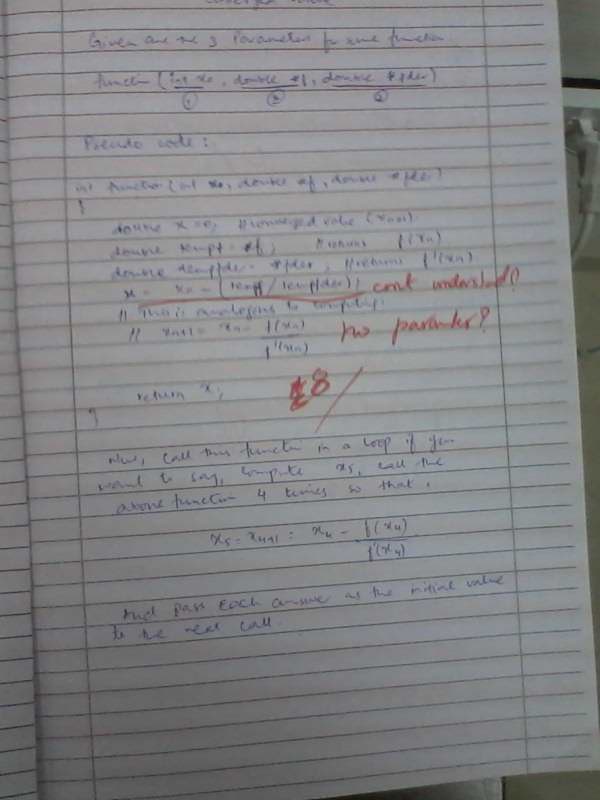 Converged value
Given are the 3 Parameters for the function
function (int x₀, double *f, double *fder)
① ② ③
Pseudo code:
int function (int x₀, double *f, double *fder)
{
double x=0; //converged value (xn+1)
double tempf = *f; //returns f(xn)
double tempfder = *fder; //returns f'(xn)
x = xn - (tempf/tempfder); cant understand?
// This is analogous to computing.
// xn+1 = xn - f(xn)/f'(xn) no paramter?
return x; 8
}
Now, call this function in a loop if you
want to say, compute x5, call the
above function 4 times so that,
x5 = x4+1 = x4 - f(x4)/f'(x4)
And pass each answer as the initial value
to the next call.